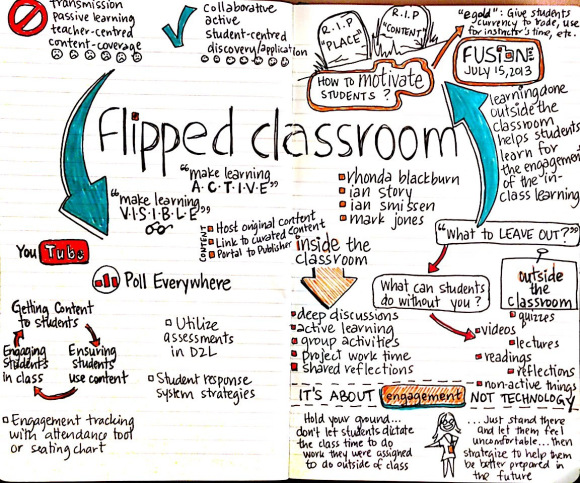 transmission
passive learning
teacher-centred
content-coverage
collaborative
active
student-centred
discovery/application
R.I.P
"PLACE"
R.I.P
"CONTENT"
HOW TO motivate
STUDENTS?
"egold": Give students
currency to trade, use
for instructor's time, etc.
FUSION
JULY 15, 2013
learning done
outside the
classroom
helps students
learn for
the engagement
of the in-
class learning
Flipped classroom
"make learning
A·C·T·I·V·E"
"make learning
V·I·S·I·B·L·E"
rhonda blackburn
ian story
ian smissen
mark jones
CONTENT
Host original content
Link to curated content
Portal to Publisher
You Tube
Poll Everywhere
Getting Content
to students
Engaging
Students
in class
Ensuring
students
use content
Utilize
assessments
in D2L
Student response
system strategies
Engagement tracking
with attendance tool
or seating chart
inside the
classroom
deep discussions
active learning
group activities
project work time
shared reflections
"What to LEAVE OUT?"
What can students
do without you?
outside
the
classroom
quizzes
videos
lectures
readings
reflections
non-active things
IT'S ABOUT engagement NOT TECHNOLOGY
Hold your ground...
don't let students dictate
the class time to do
work they were assigned
to do outside of class
...Just stand there
and let them feel
uncomfortable...then
strategize to help them
be better prepared in
the future